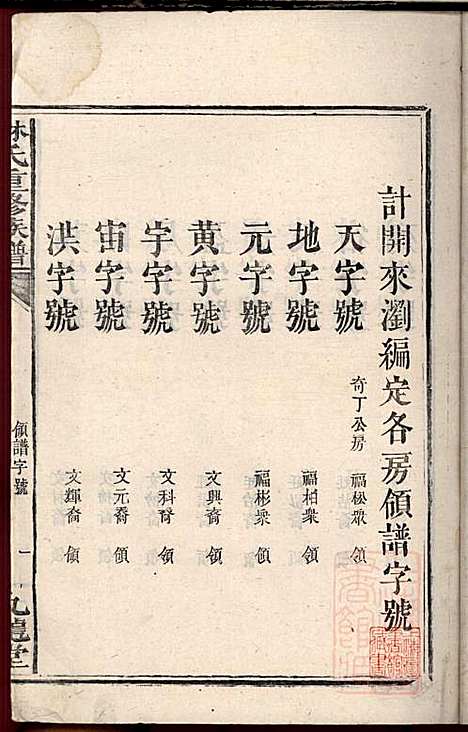 計開來瀏編定各房領譜字號
天字號 奇丁公房 福松眾 領
地字號 福柏眾 領
元字號 福彬眾 領
黃字號 文興裔 領
宇字號 文科裔 領
宙字號 文元裔 領
洪字號 文輝裔 領
林氏重修族譜
領譜字號
一
九龍堂